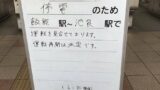 停電 のため
飯能 駅～ 駅で
運転を見合わせております。
運転再開は未定です。